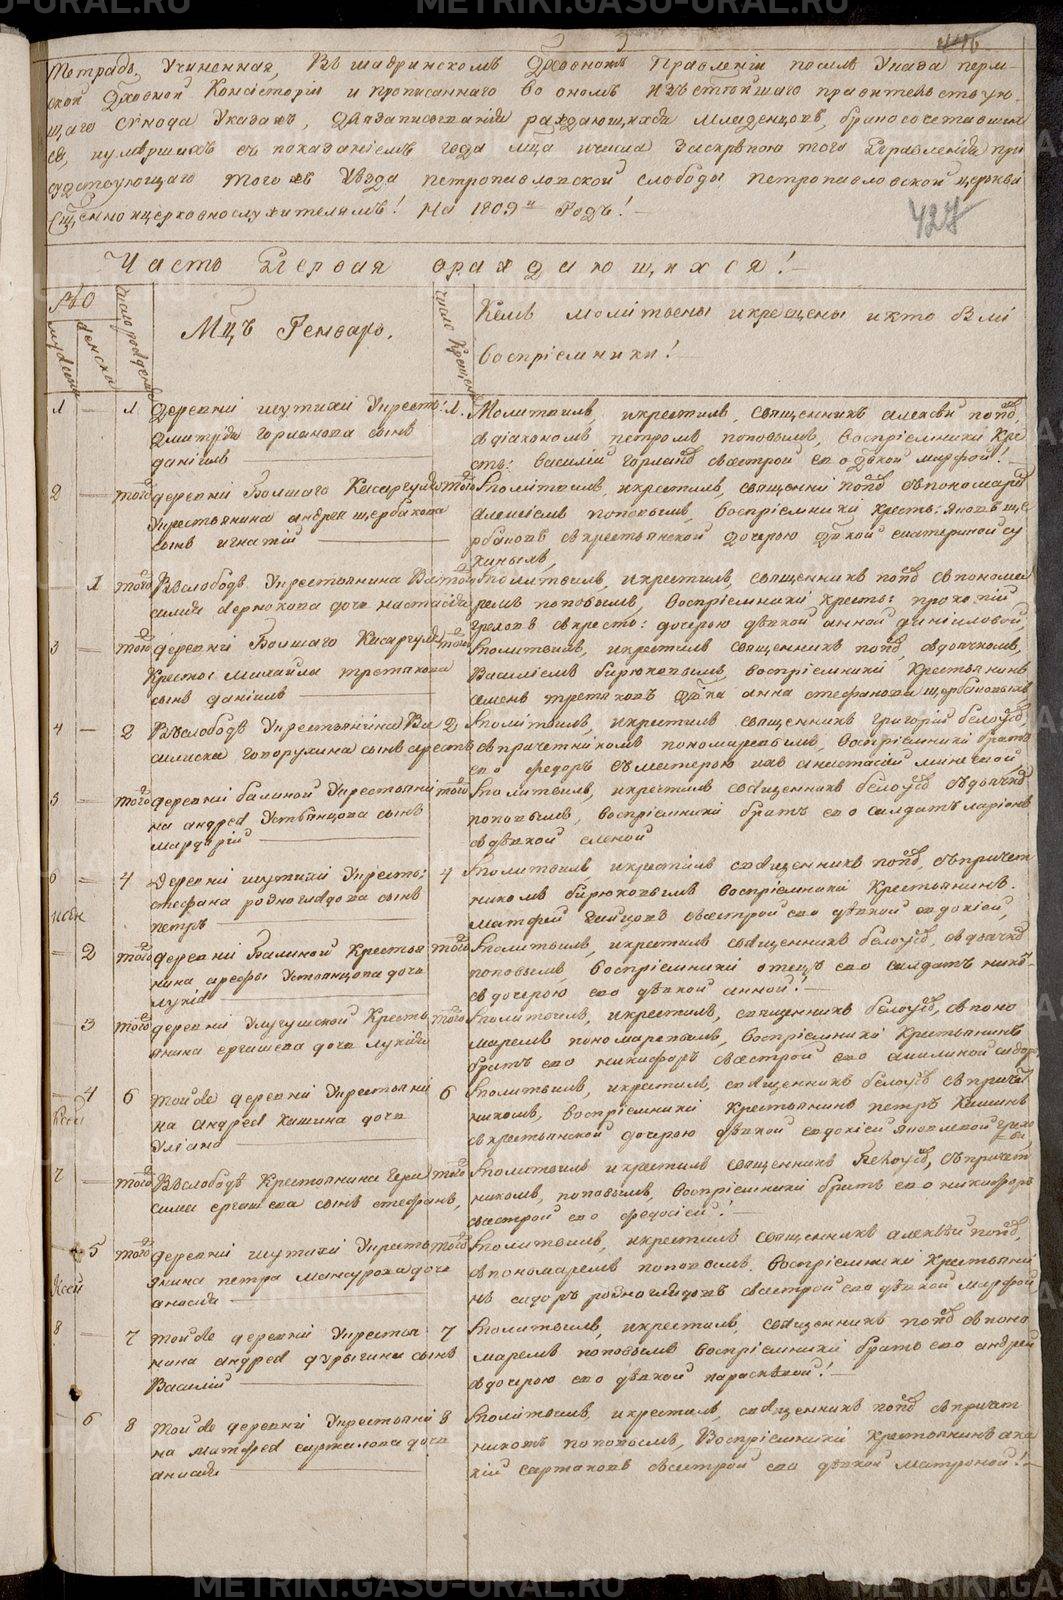 METRIKI.GASU-URAL.RU
446
Тетрадь Учиненная, Въ шадринскомъ Духовномъ Правленіи послѣ Указа перм-
ской Духовной Консисторіи и прописаннаго во ономъ изъ святѣйшаго правительствую-
щаго сѵнода Указахъ, Для записыванія раждающихся младенцовъ, бракосочетавши
ся, и умершихъ съ показаніемъ года мца и числа За скрѣпою того Правленія при
сутствующаго того жъ Уѣзда петропавловской слободы петропавловской церькви
Священно и церковнослужителямъ! На 1809й Годъ!
427
Часть Первая о раждающихся!
Число рожденія
Мцъ Генварь.
Число Крещенія
Кемъ молитвены и крещены и кто были
воспріемники!
1 — 1 деревни шутихи У крестъ: 1.
Дмитрія горланова сынъ
даніилъ
Молитвилъ, и крестилъ, священникъ алексѣй поповъ,
съ діакономъ петромъ поповымъ, воспріемники кре
стъ: василій горлановъ съ сестрой его дѣвкой марфой!
2 — того деревни Болшаго Касаргуля того
У крестьянина андрея щербакова
сынъ игнатій
молитвилъ, и крестилъ, священникъ поповъ съ пономаремъ
алексіемъ поповымъ, воспріемники крестъ: яковъ ще
рбаковъ съ крестьянской дочерью дѣвкой екатериной су
хиныхъ,
1 того Въ слободѣ У крестьянина Ва того
силья чернокова дочь настасія
молитвилъ, и крестилъ, священникъ поповъ съ понома
ремъ поповымъ, воспріемники крестъ: прокопій
греховъ съ кресть: дочерью дѣвкой анной даниловой,
3 — того деревни Болшаго Касаргуля того
Крестья: михайла третьякова
сынъ даніилъ
молитвилъ, и крестилъ священникъ поповъ, съ дьячкомъ,
Василіемъ бирюковымъ, воспріемники Крестьянинъ
семенъ третьяковъ дѣвка анна стефанова щербаковыхъ
4 — 2 Въ слободѣ У крестьянина Ва 2
силиска говорухина сынъ арестъ
молитвилъ, и крестилъ священникъ григорій белоусовъ,
съ причетникомъ пономаревымъ, воспріемники братъ
его федоръ съ матерью ихъ анастасіей минеевой
5 — того деревни балиной У крестьяни того
на андрея Устьянцова сынъ
мардарій
молитвилъ, и крестилъ священникъ белоусовъ съ дьячкомъ
поповымъ, воспріемники братъ его салдатъ ларіонъ
съ дѣвкой еленой
6 — 4 Деревни шутихи У кресть: 4
стефана родногладова сынъ
петръ
молитвилъ, и крестилъ священникъ поповъ, съ причет
никомъ бирюковымъ воспріемники Крестьянинъ
матфей съ сестрой его дѣвкой евдокіей,
2 того деревни Балиной Крестья того
нина арефы Устьянцова дочь
лукія
молитвилъ, и крестилъ, священникъ белоусовъ, съ дьячкомъ
поповымъ, воспріемники отецъ его салдатъ
съ дочерью его дѣвкой анной!
3 того деревни Улугушской Кресть того
янина ергашева дочь лукія
молитвилъ, и крестилъ, священникъ белоусовъ, съ поно
маремъ пономаревымъ, воспріемники Крестьянинъ
братъ его никифоръ съ сестрой его акилиной
4 6 той же деревни У крестьяни 6
на андрея Кашина дочь
Уліана
молитвилъ, и крестилъ, священникъ белоусовъ съ причет
никомъ, воспріемники Крестьянинъ петръ Кашинъ
съ крестьянской дочерью дѣвкой евдокіей яковлевой
7 того Въ слободѣ Крестьянина Гера того
сима ергашева сынъ стефанъ,
молитвилъ и крестилъ священникъ белоусовъ, съ причет
никомъ, поповымъ, воспріемники братъ его никифоръ
съ сестрой его федосіей!
5 того деревни шутихи У кресть того
янина петра мансурова дочь
анисія
молитвилъ, и крестилъ священникъ алексѣй поповъ,
съ пономаремъ поповымъ. воспріемники Крестьяни
нъ сидоръ родногладовъ съ сестрой его дѣвкой марфой,
8 — 7 той же деревни У крестья 7
нина андрея дурыгина сынъ
Василій
молитвилъ, и крестилъ, священникъ поповъ съ поно
маремъ поповымъ воспріемники братъ его андрей
съ дочерью его дѣвкой парасковой!
6 8 той же деревни У крестьяни 8
на матфея сарталова дочь
анисія
молитвилъ, и крестилъ, священникъ поповъ съ причет
никомъ поповымъ, Воспріемники крестьянинъ ака
кій съ сестрой его дѣвкой матроной!
METRIKI.GASU-URAL.RU